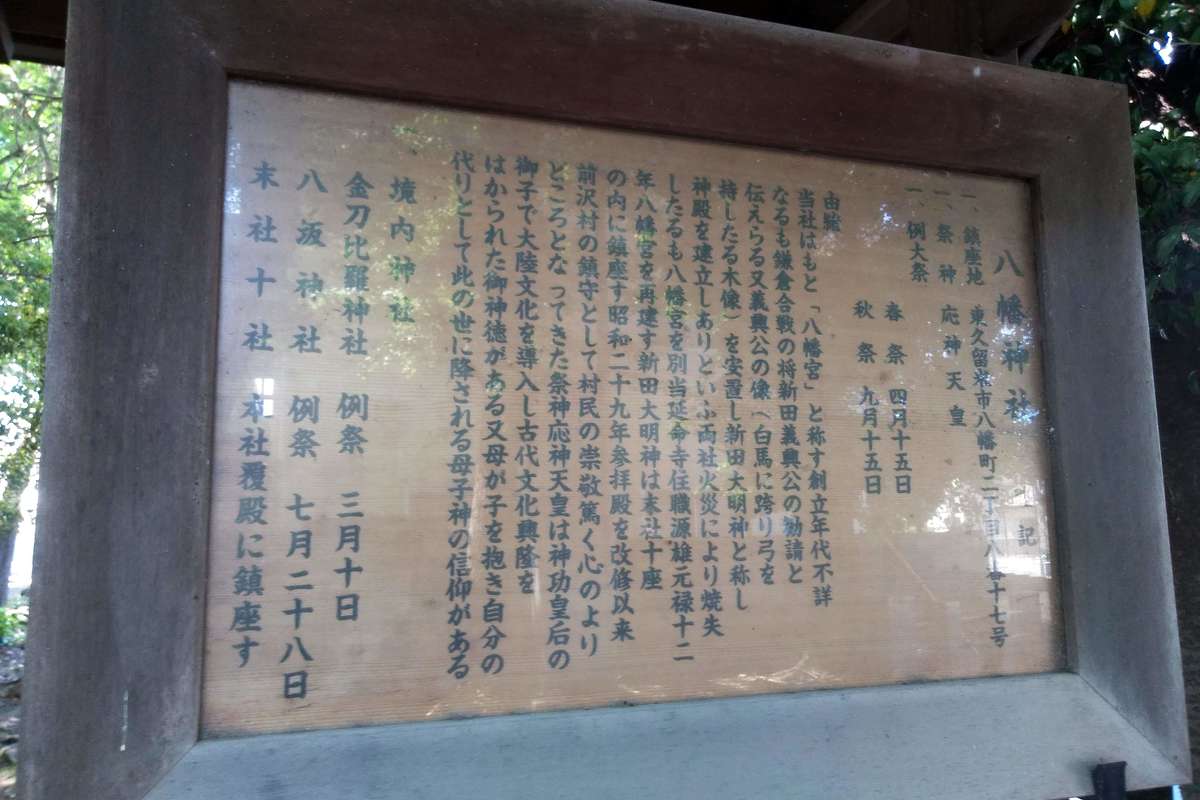 八幡神社 記
一、鎮座地 東久留米市八幡町二丁目八番十七号
一、祭神 応神天皇
一、例大祭 春祭 四月十五日
秋祭 九月十五日
由緒
当社はもと「八幡宮」と称す創立年代不詳
なるも鎌倉合戦の将新田義興公の勧請と
伝えらる又義興公の像（白馬に跨り弓を
持したる木像）を安置し新田大明神と称し
神殿を建立しありといふ両社火災により焼失
したるも八幡宮を別当延命寺住職源雄元禄十二
年八幡宮を再建す新田大明神は末社十座
の内に鎮座す昭和二十九年参拝殿を改修以来
前沢村の鎮守として村民の崇敬篤く心のより
どころとなってきた祭神応神天皇は神功皇后の
御子で大陸文化を導入し古代文化興隆を
はかられた御神徳がある又母が子を抱き自分の
代りとして此の世に降される母子神の信仰がある
境内神社
金刀比羅神社 例祭 三月十日
八坂神社 例祭 七月二十八日
末社十社 本社覆殿に鎮座す